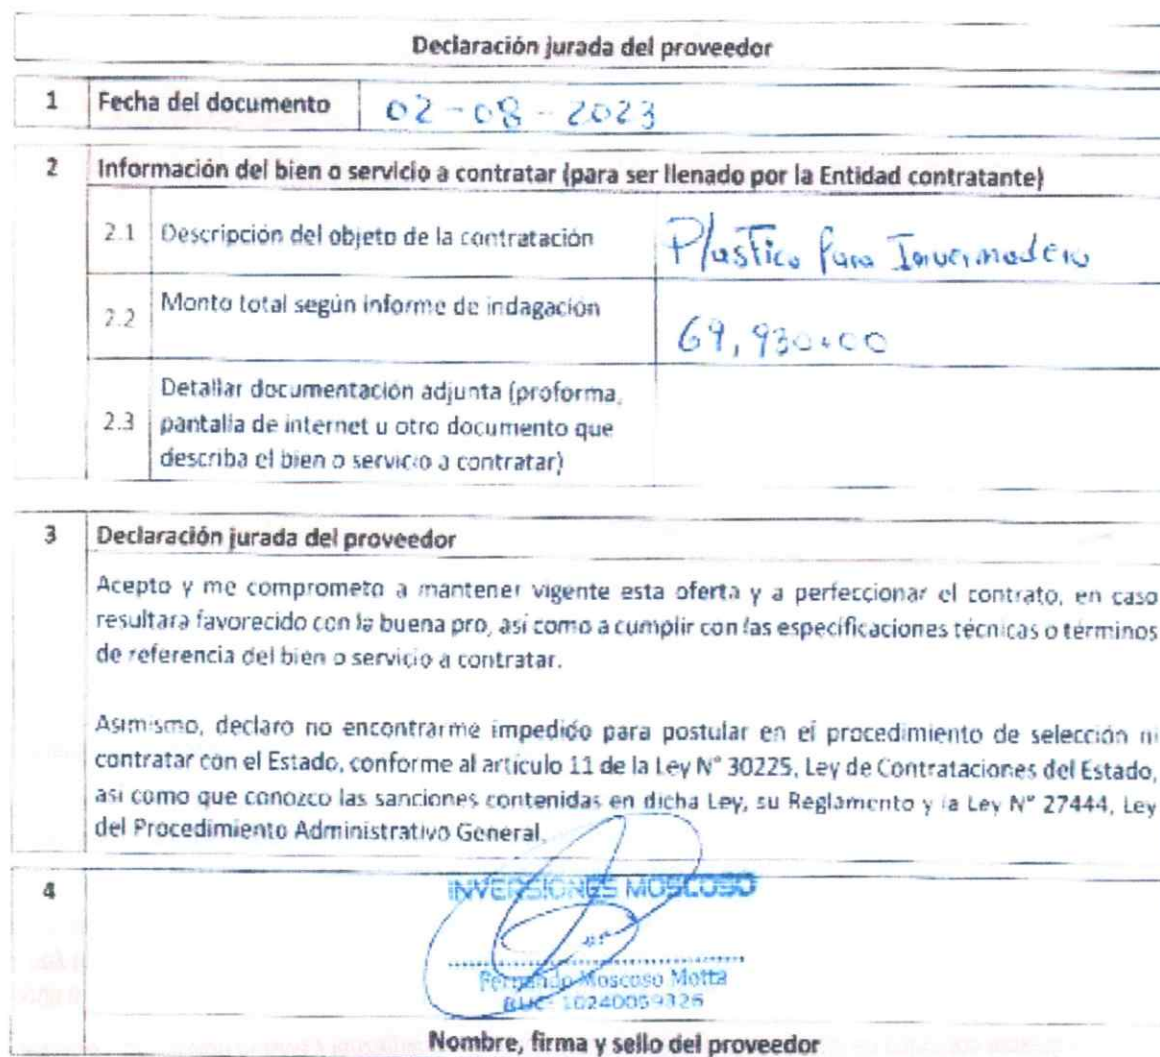 Declaración jurada del proveedor
1 Fecha del documento 02-08-2023
2 Información del bien o servicio a contratar (para ser llenado por la Entidad contratante)
2.1 Descripción del objeto de la contratación Plastico Para Invernadero
2.2 Monto total según informe de indagación 69,930.00
2.3 Detallar documentación adjunta (proforma,
pantalla de internet u otro documento que
describa el bien o servicio a contratar)
3 Declaración jurada del proveedor
Acepto y me comprometo a mantener vigente esta oferta y a perfeccionar el contrato, en caso
resultara favorecido con la buena pro, así como a cumplir con las especificaciones técnicas o términos
de referencia del bien o servicio a contratar.
Asimismo, declaro no encontrarme impedido para postular en el procedimiento de selección ni
contratar con el Estado, conforme al artículo 11 de la Ley N° 30225, Ley de Contrataciones del Estado,
así como que conozco las sanciones contenidas en dicha Ley, su Reglamento y la Ley N° 27444, Ley
del Procedimiento Administrativo General.
4
INVERSIONES MOSCOSO
Fernando Moscoso Motta
RUC: 10240059326
Nombre, firma y sello del proveedor